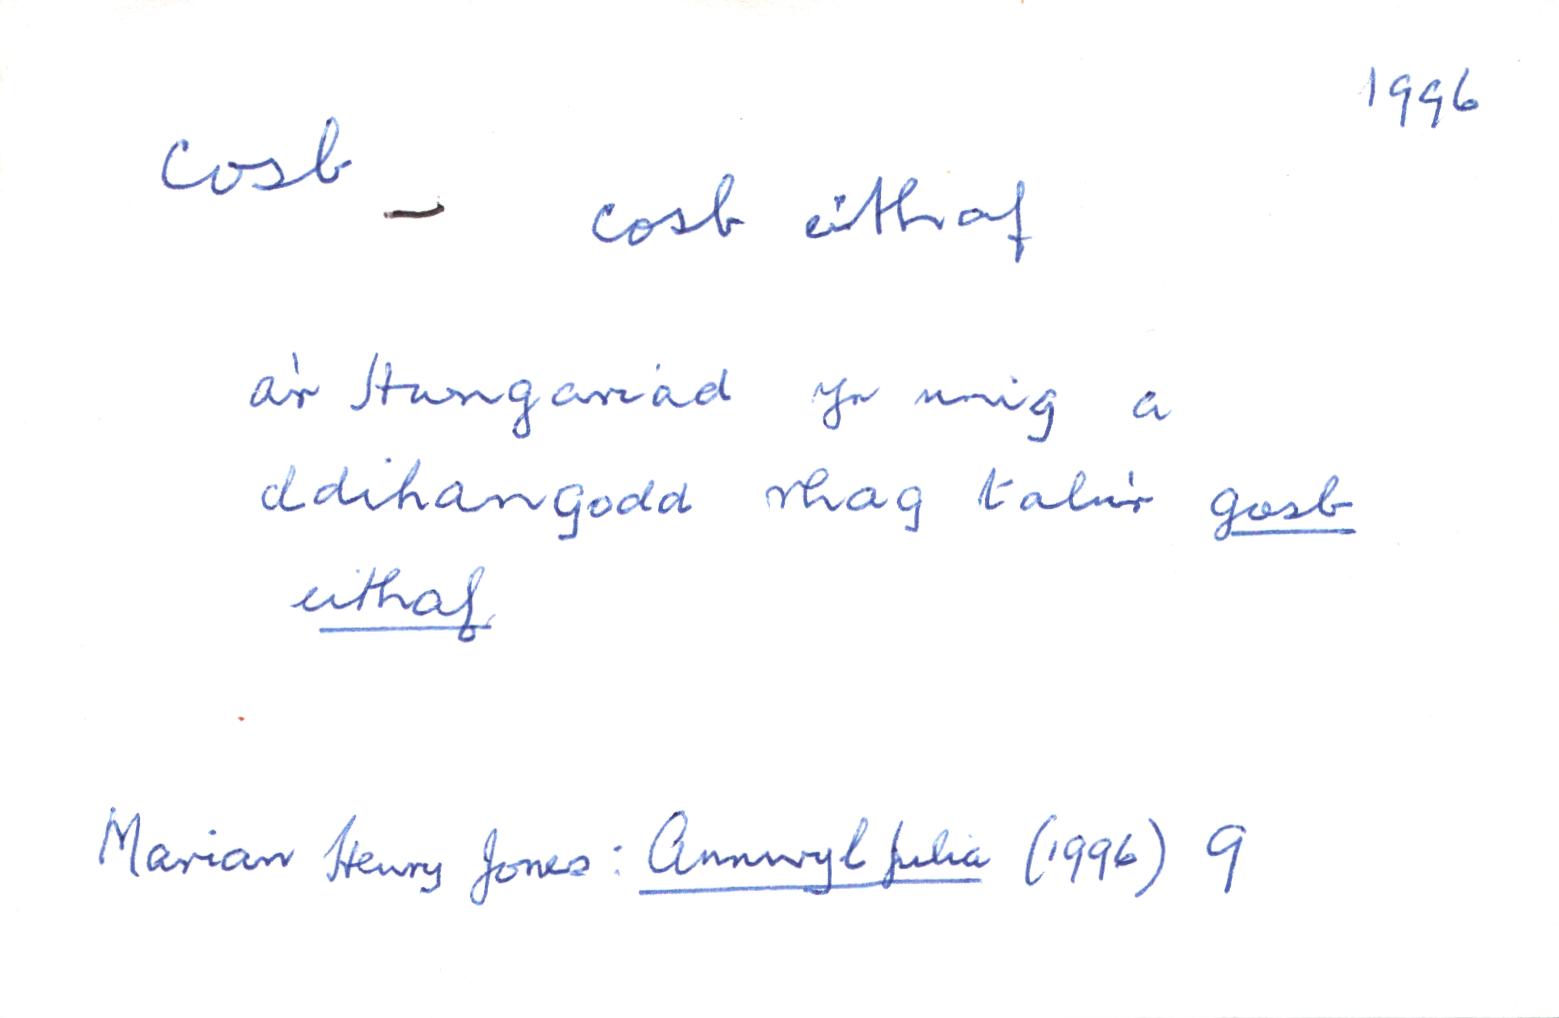 1996
cosb – cosb eithaf
a'r Hwngariad yr unig a
ddihangodd rhag talu'r gosb
eithaf
Marian Henry Jones: Annwyl Julia (1996) 9